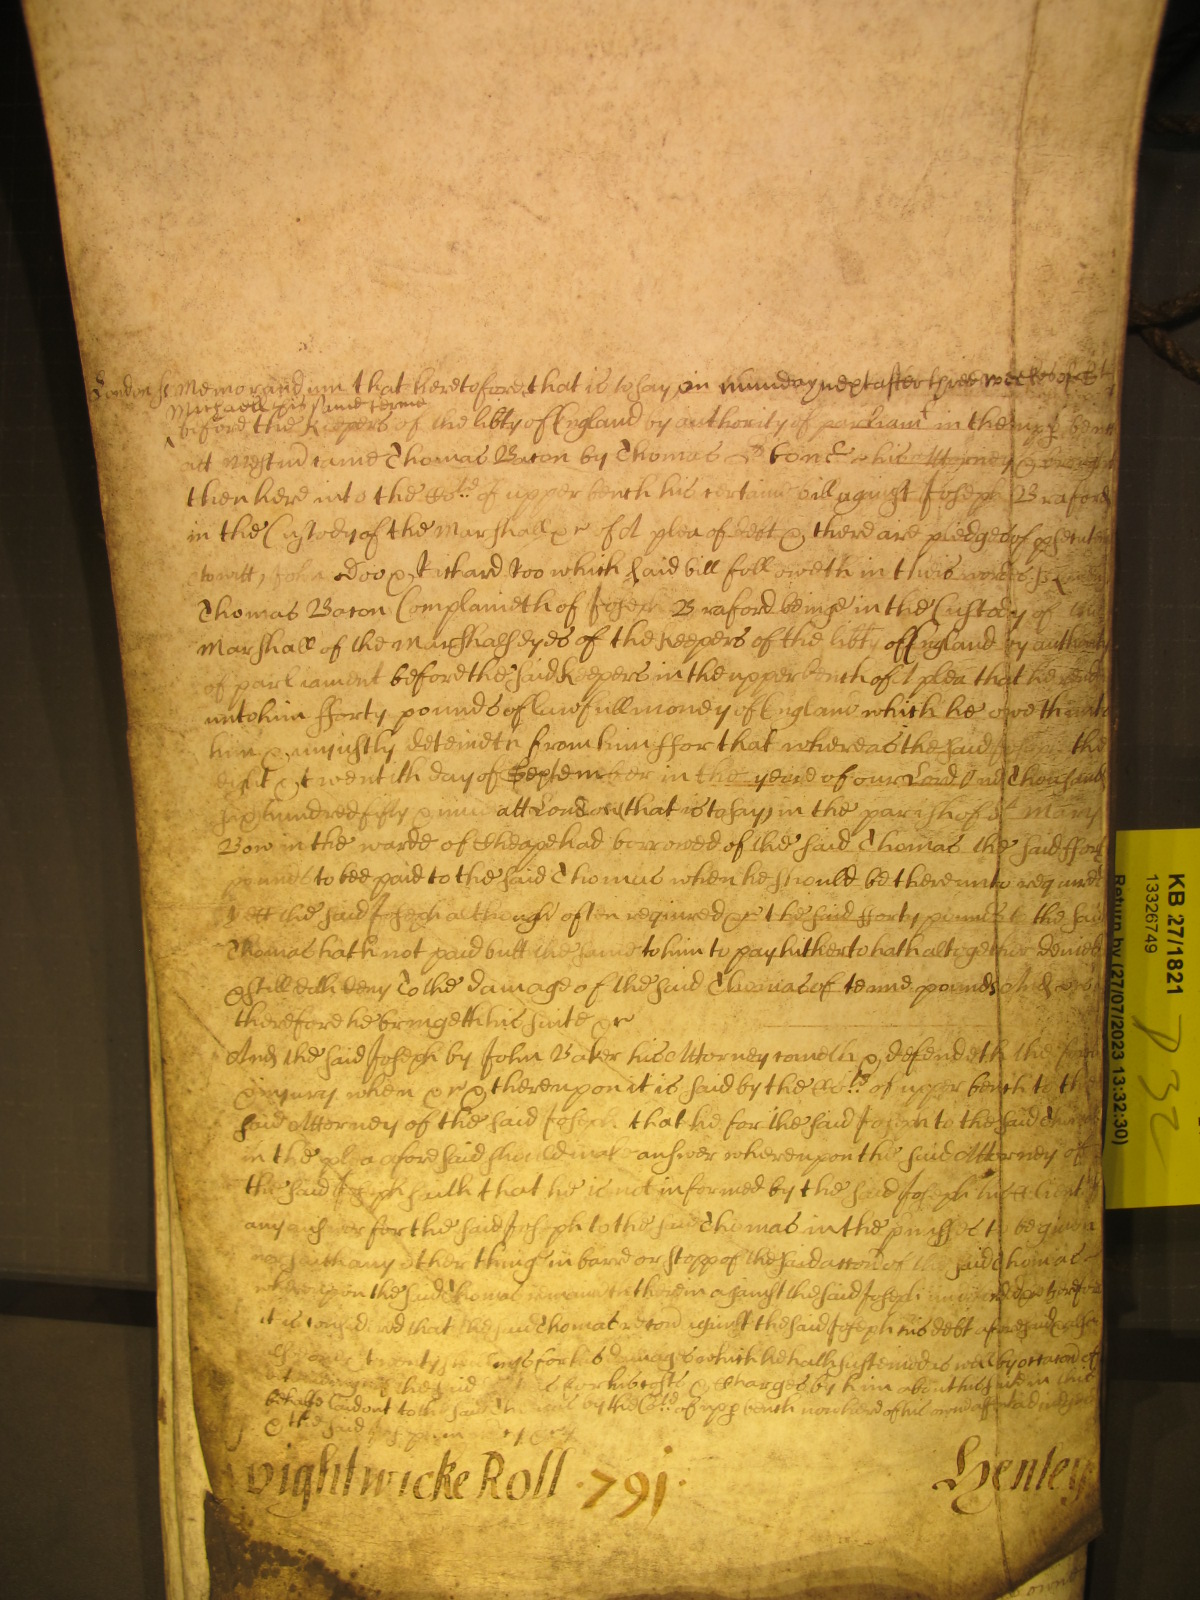 London ss Memorandum that heretofore that is to say on munday next after three weekes of St
Michaell this same terme
before the Keepers of the libty of England by authority of parliamt in the upp bench
att Westm came Thomas Bacon by Thomas his Attorney & brought
then here into the Co:te of upper bench his certaine bill against Joseph Braford
in the Custody of the Marshall &c of a plea of debt & there are pledges of psecute
to witt John Doo & Richard Roo which said bill followeth in theis words ss London
Thomas Bacon Complaineth of Joseph Braford being in the Custody of the
Marshall of the Marshalseyes of the Keepers of the libty of England by authority
of parliament before the said Keepers in the upper bench of a plea that he render
unto him fforty pounds of lawfull money of England which he oweth unto
him & unjustly deteineth from him ffor that whereas the said Joseph the
eight & twentith day of September in the yeare of our Lord One Thousand
six hundred fifty & nine att London (that is to say) in the parish of St Mary
Bow in the warde of Cheape had borrowed of the said Thomas the said fforty
pounds to bee paid to the said Thomas when he should be thereunto required
Yett the said Joseph although often required &c the said fforty pounds to the said
Thomas hath not paid butt the same to him to pay hitherto hath altogether denied
& still doth deny To the damage of the said Thomas of tenne pounds And
therefore he bringeth his suite &c
And the said Joseph by John Baker his Attorney cometh & defendeth the force
& injury when &c & thereupon it is said by the Co:te of upper bench to the
said Attorney of the said Joseph that he for the said Joseph to the said Thomas
in the plea aforesaid should make answer whereupon the said Attorney of
the said Joseph saith that he is not informed by the said Joseph his Client of
any answer for the said Joseph to the said Thomas in the pmisses to be given
nor saith any other thing in barre or stopp of the said accon of the said Thomas
whereupon the said Thomas remaineth therein against the said Joseph undefended &c therefore
it is considered that the said Thomas recover against the said Joseph his debt aforesaid & also
twenty shillings for his damages which he hath susteined as well by occacon of
the said for his costs & charges by him about his suite in this
behalfe laid out to the said Thomas by the Co:te of upp bench now here of his owne assent adjudged
& the said Joseph in mercy &c
Wightwicke Roll ·791· Henley
KB 27/1821
13326749
Return by (27/07/2023 13:32:30)